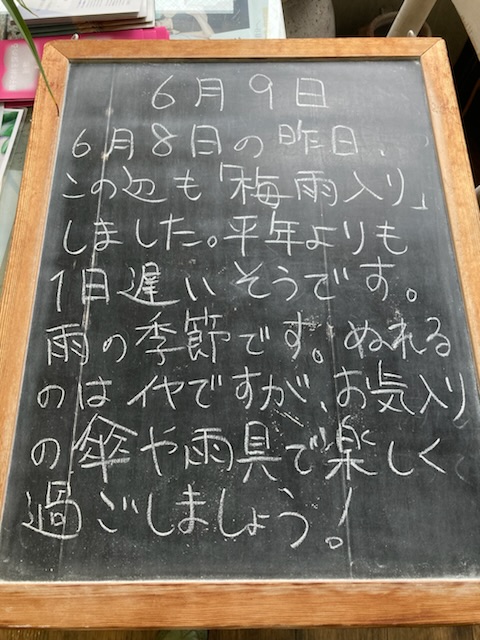 6月9日
6月8日の昨日、
この辺も「梅雨入り」
しました。平年よりも
1日遅いそうです。
雨の季節です。ぬれる
のはイヤですが、お気入り
の傘や雨具で楽しく
過ごしましょう!